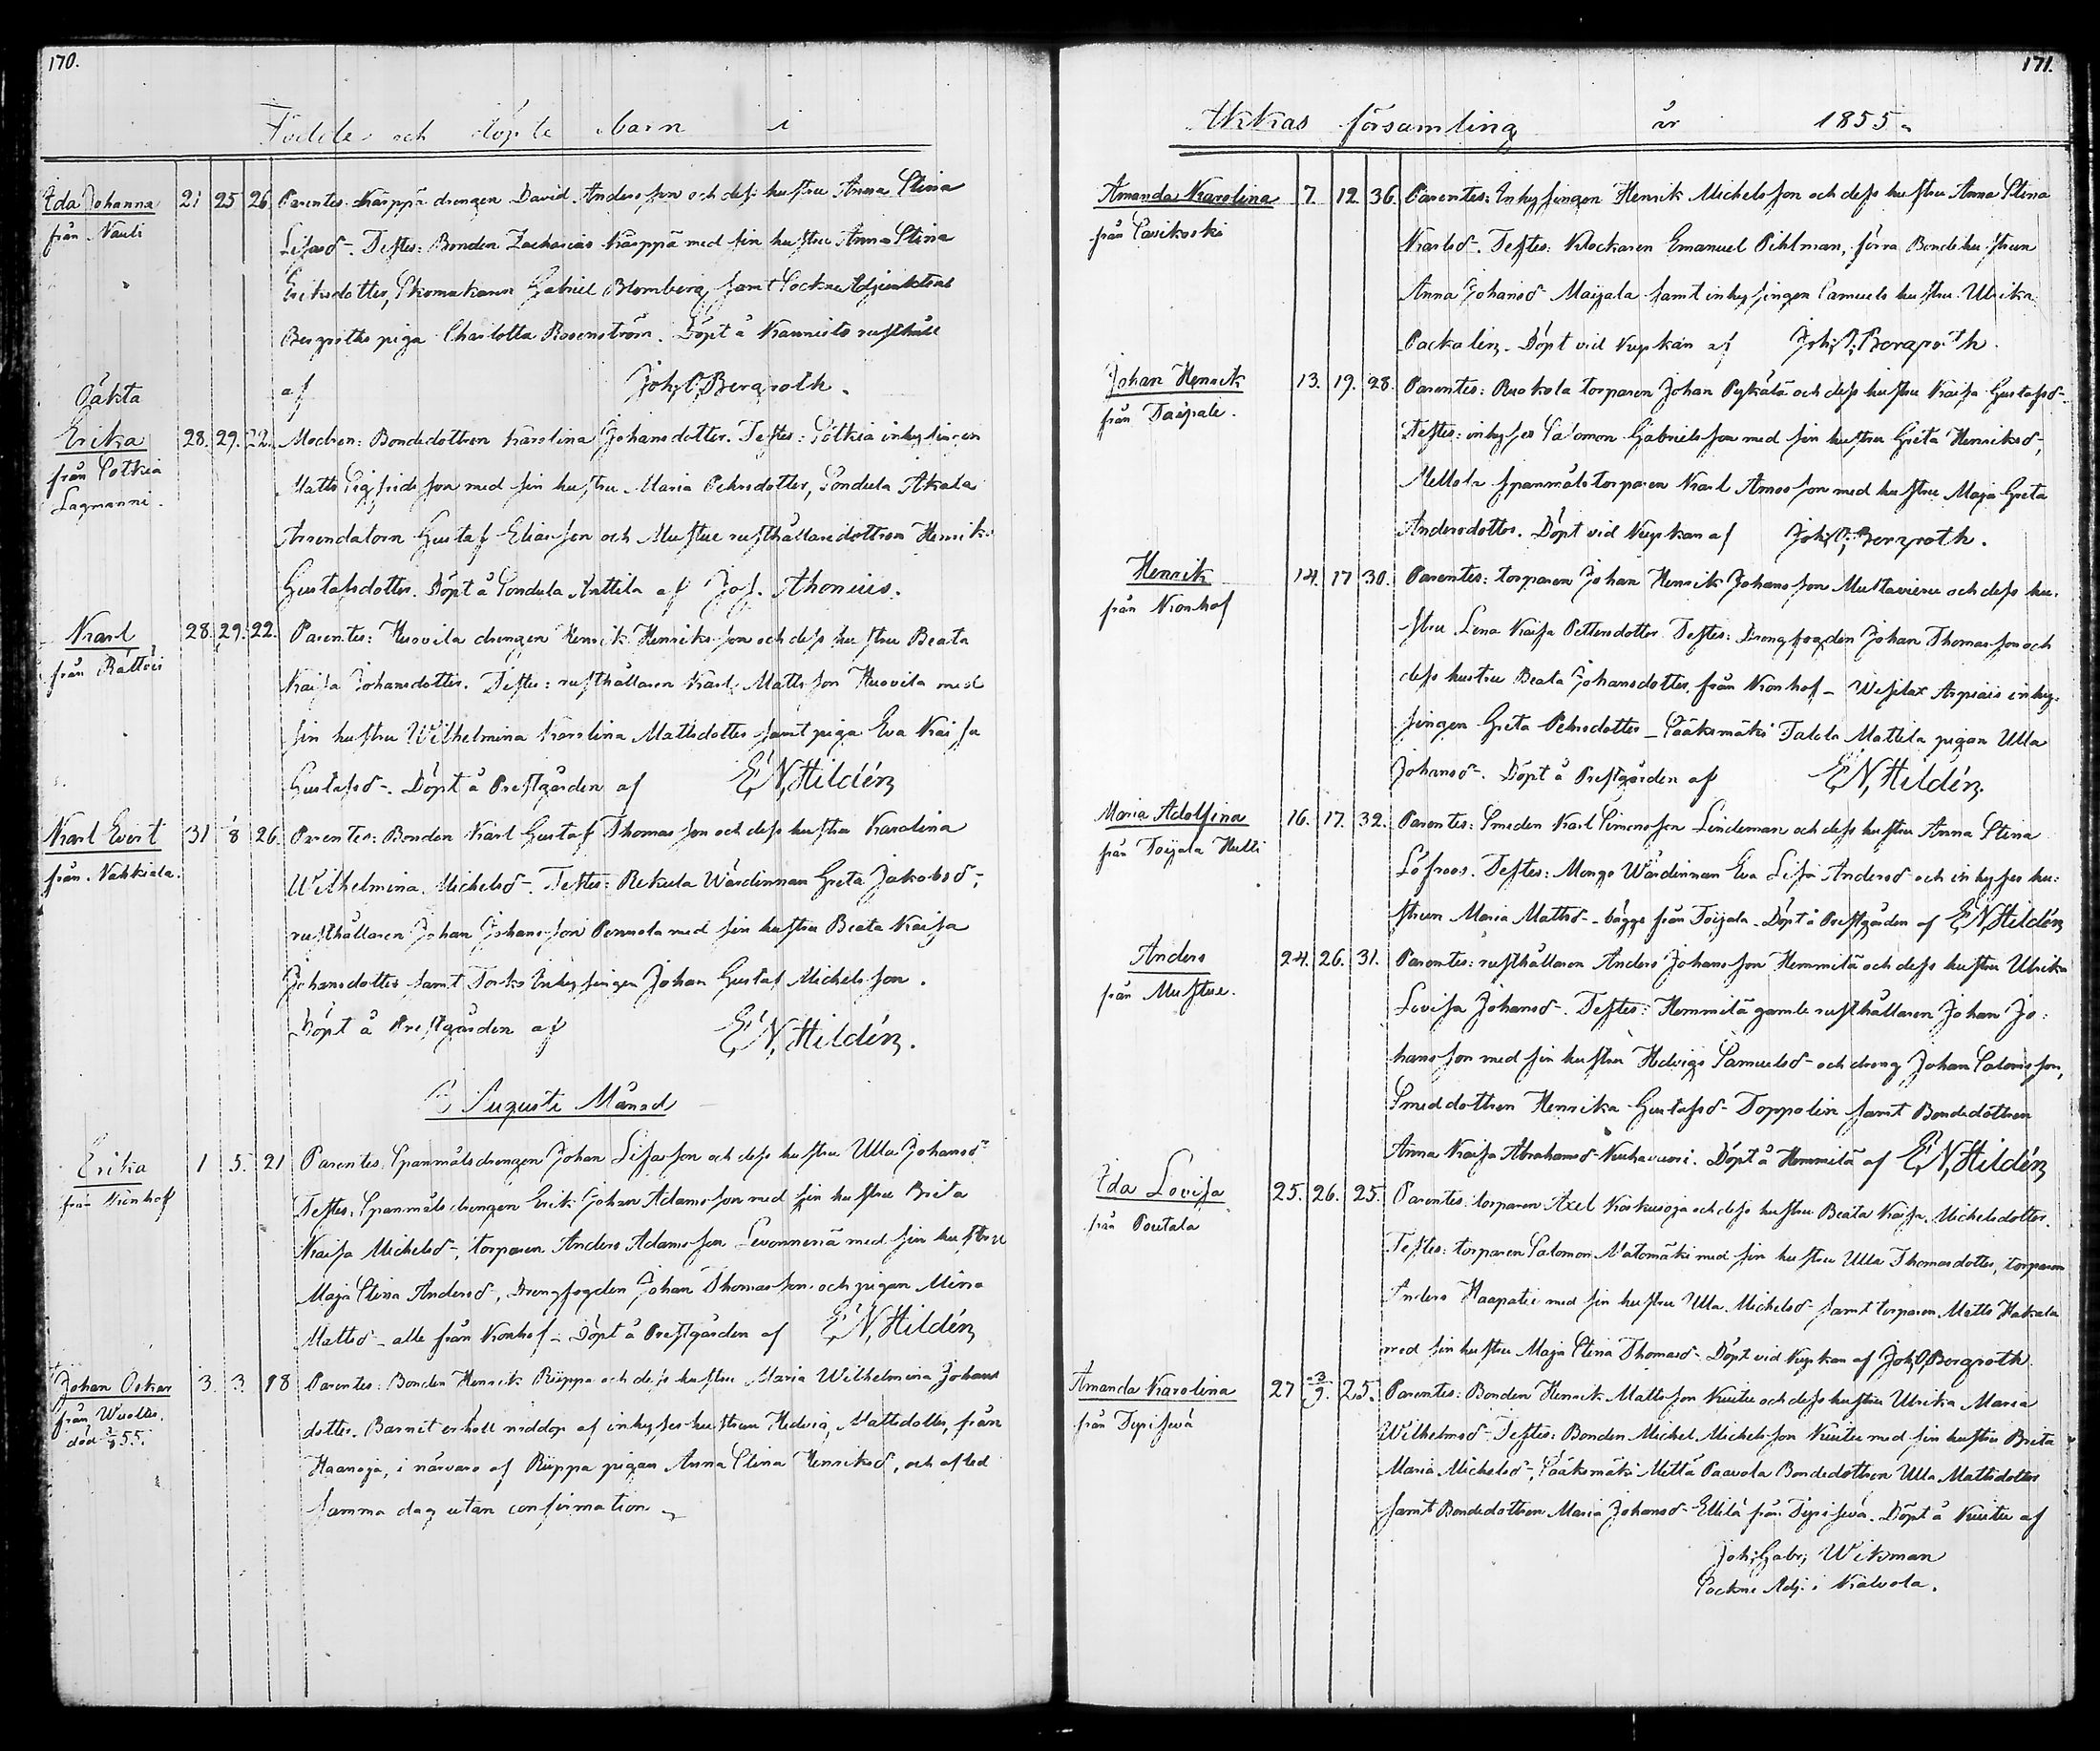 170.
Födde och döpte barn i
Ida Johanna 21 25 26 Parentes: Käppä drengen David Andersson och dess hustru Anna Stina
från Nauli
Lisasd-. Testes: Bonden Zacharias Käppä med sin hustru Anna Stina
Eriksdotter, Skomakaren Gabriel Blomberg samt Sockne Adjunkten
Bergroths piga Charlotta Rosenström. Döpt å Kannisto rusthåll
af Joh. O. Bergroth.
Oäkta
Erika 28. 29. 22. Modren: Bondedottren Karolina Johansdotter. Testes: Sotkia inhysingen
från Sotkia
Lagmanni.
Matts Sigfridsson med sin hustru Maria Pehrsdotter, Sondula Akala
Arrendatorn Gustaf Eliasson och Mustue rusthållaredottren Henrika
Gustafsdotter. Döpt å Sondula Anttila af Jos. Ahonius.
Karl 28. 29. 22. Parentes: Huovila drengen Henrik Henriksson och dess hustru Beata
från Rättöi
Kaisa Johansdotter. Testes: rusthållaren Karl Mattsson Huovila med
sin hustru Wilhelmina Karolina Mattsdotter samt piga Eva Kaisa
Gustafsd-. Döpt å Prestgården af E. N. Hildén
Karl Evert 31 8 26. Parentes: Bonden Karl Gustaf Thomasson och dess hustru Karolina
från Nahkiala.
Wilhelmina Michelsd-. Testes: Rekula Wärdinnan Greta Jakobsd-,
rusthållaren Johan Johansson Pennola med sin hustru Beata Kaisa
Johansdotter samt Torko Inhysingen Johan Gustaf Michelsson.
Döpt å Prestgården af E. N. Hildén.
Augusti Månad
Erika 1 5. 21 Parentes: Spanmålsdrengen Johan Lisasson och dess hustru Ulla Johansd-
från Kronhof
Testes: Spanmålsdrengen Erik Johan Adamsson med sin hustru Brita
Kaisa Michelsd-, torparen Anders Adamsson Levonmenä med sin hustru
Maja Stina Andersd-, Drengfogden Johan Thomasson och pigan Mina
Mattsd- alle från Kronhof - Döpt å Prestgården af E. N. Hildén
Johan Oskar 3. 3. 18 Parentes: Bonden Henrik Riippa och dess hustru Maria Wilhelmina Johans
från Wuolles.
död 3/8 55.
dotter. Barnet erhöll nöddop af inhyses hustrun Hedvig Mattsdotter, från
Haanoja, i närvaro af Riippa pigan Anna Stina Henriksd-, och afled
samma dag utan confirmation
171.
Akkas församling år 1855.
Amanda Karolina 7. 12 36. Parentes: Inhysingen Henrik Michelsson och dess hustru Anna Stina
från Savikoski
Karlsd-. Testes: Klockaren Emanuel Pihlman, förra Bondehustrun
Anna Johansd- Maijala samt inhysingen Samuels hustru Ulrika
Packalen. Döpt vid Kyrkan af Joh. O. Bergroth.
Johan Henrik 13. 19. 28. Parentes: Ruokola torparen Johan Pykälä och dess hustru Kaisa Gustafsd-.
från Taipale.
Testes: inhyses Salomon Gabrielsson med sin hustru Greta Henriksd-,
Mellola spanmålstorparen Karl Amosson med hustru Maja Greta
Andersdotter. Döpt vid Kyrkan af Joh. O. Bergroth.
Henrik 14. 17 30. Parentes: torparen Johan Henrik Johansson Mustavieru och dess hu-
från Kronhof
stru Lena Kaisa Pettersdotter. Testes: Drengfogden Johan Thomasson och
dess hustru Beata Johansdotter från Kronhof - Wesilax Arpiais inhy-
singen Greta Pehrsdotter - Sääksmäki Talola Mattila pigan Ulla
Johansd-. Döpt å Prestgården af E. N. Hildén.
Maria Adolfina 16. 17. 32. Parentes: Smeden Karl Simonsson Lindeman och dess hustru Anna Stina
från Toijala Hutti
Löfroos. Testes: Mongo Wärdinnan Eva Lisa Andersd- och inhyses hu-
strun Maria Mattsd- bägge från Toijala. Döpt å Prestgården af E. N. Hildén
Anders 24. 26. 31. Parentes: rusthållaren Anders Johansson Hemmilä och dess hustru Ulrika
från Mustue.
Lovisa Johansd-. Testes: Hemmilä gamle rusthållaren Johan Jo-
hansson med sin hustru Hedvig Samuelsd- och dreng Johan Salomsson,
Smeddottren Henrika Gustafsd- Toppolin samt Bondedottren
Anna Kaisa Abrahamsd- Kurhavuori. Döpt å Hemmilä af E. N. Hildén
Ida Lovisa 25. 26. 25. Parentes: torparen Axel Koskuoja och dess hustru Beata Kaisa Michelsdotter.
från Poutala
Testes: torparen Salomon Matomäki med sin hustru Ulla Thomasdotter, torparen
Anders Haapatie med sin hustru Ulla Michelsd- samt torparen Matts Hakala
med sin hustru Maja Stina Thomasd-. Döpt vid Kyrkan af Joh. O. Bergroth.
Amanda Karolina 27 3/9. 25. Parentes: Bonden Henrik Mattsson Kuitu och dess hustru Ulrika Maria
från Typisevä
Wilhelmsd- Testes: Bonden Michel Michelsson Kuitu med sin hustru Brita
Maria Michelsd-, Sääksmäki Mettä Paavola Bondedottren Ulla Mattsdotter
samt Bondedottren Maria Johansd- Ellilä från Typisevä. Döpt å Kuitu af
Joh. Gabr. Wikman
Sockne Adj. i Kalvola.